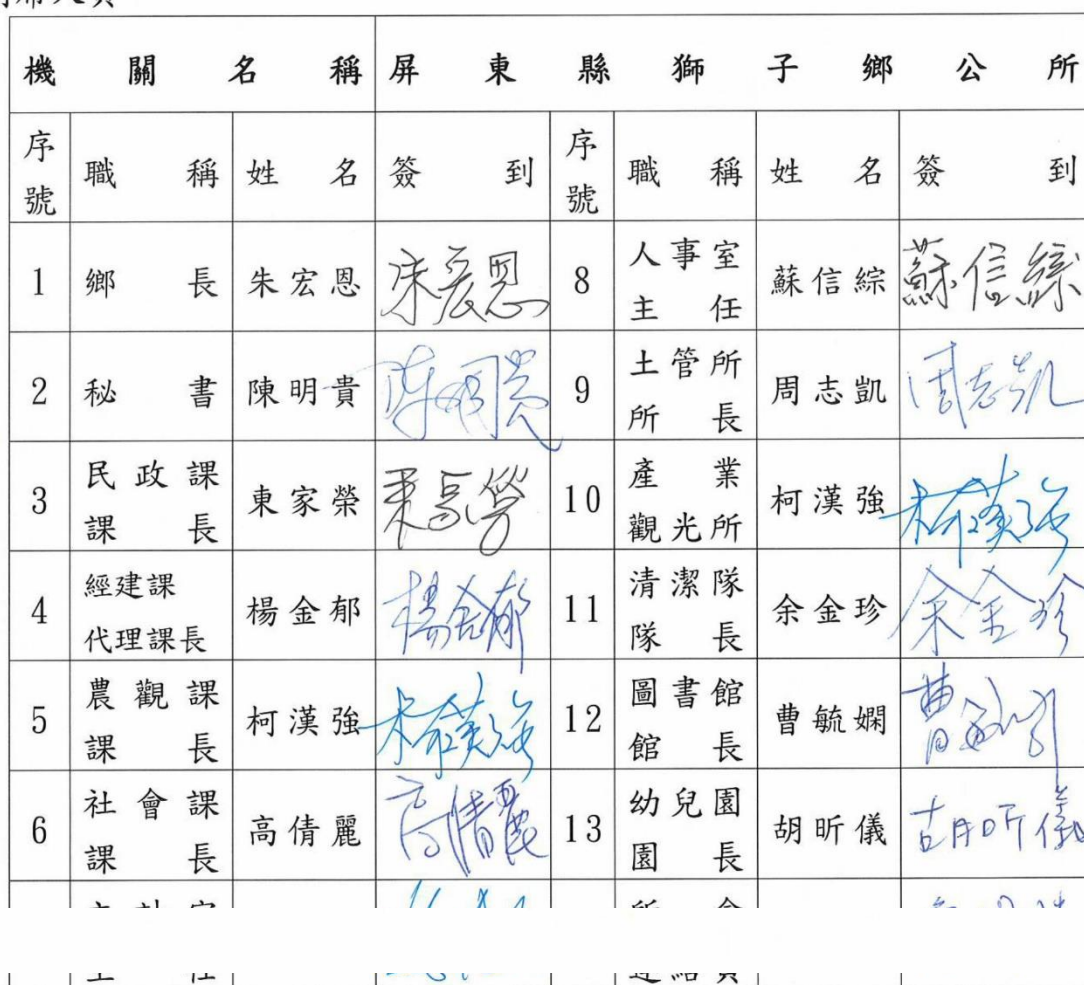 機關名稱 屏東縣獅子鄉公所
序號 職稱 姓名 簽到 序號 職稱 姓名 簽到
1 鄉長 朱宏恩 朱宏恩 8 人事室主任 蘇信綜 蘇信綜
2 秘書 陳明貴 陳明貴 9 土管所所長 周志凱 周志凱
3 民政課課長 東家榮 東家榮 10 產業觀光所 柯漢強 柯漢強
4 經建課代理課長 楊金郁 楊金郁 11 清潔隊隊長 余金珍 余金珍
5 農觀課課長 柯漢強 柯漢強 12 圖書館館長 曹毓嫻
6 社會課課長 高倩麗 高倩麗 13 幼兒園園長 胡昕儀 胡昕儀